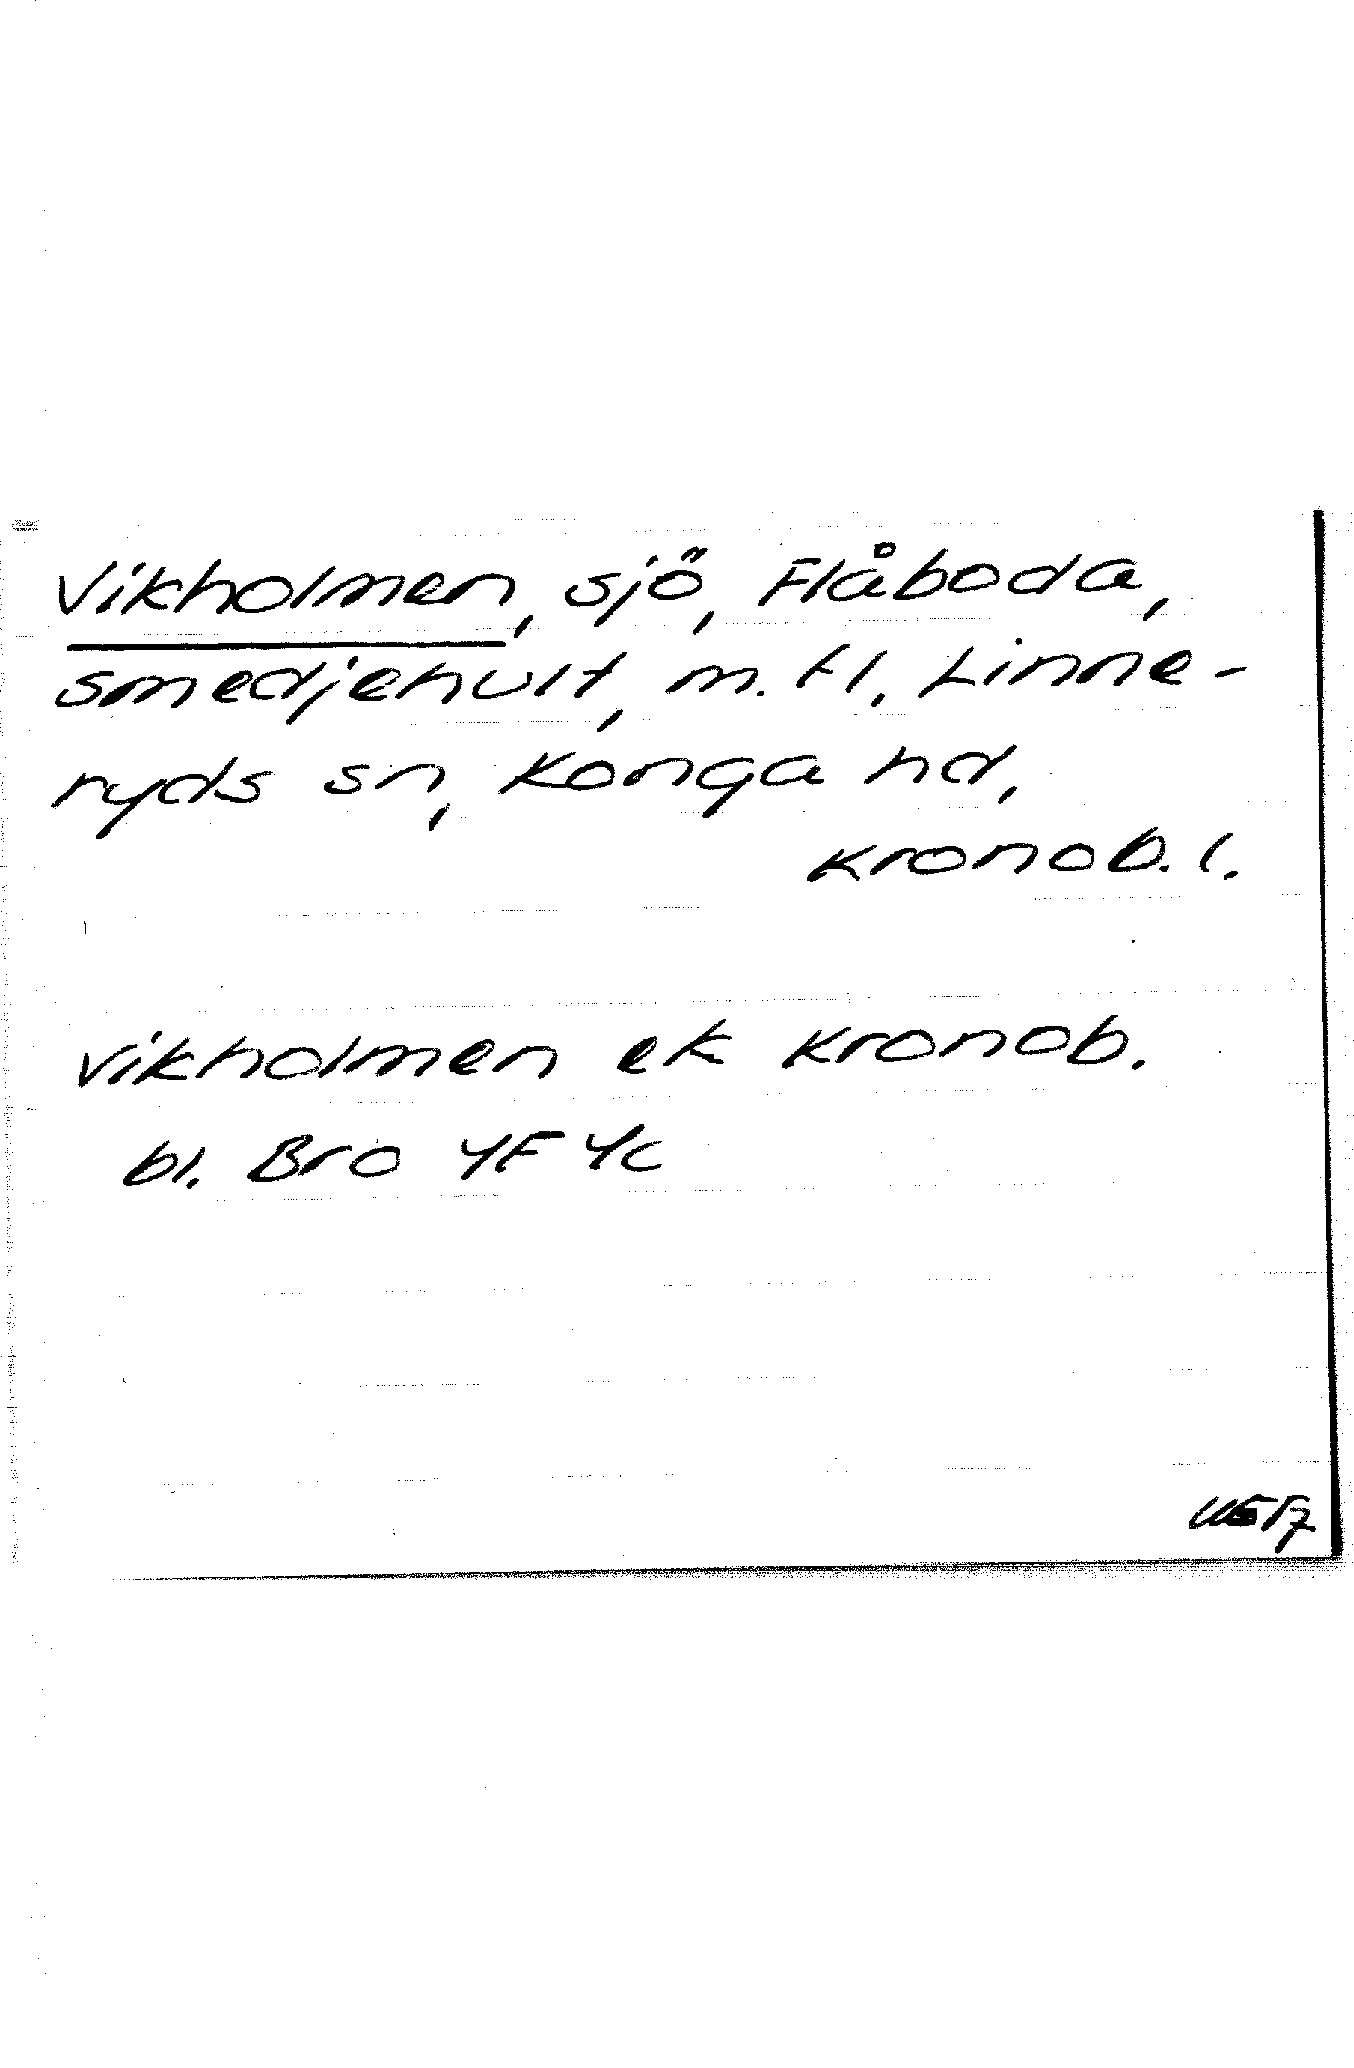 Vikholmen, sjö, Flåboda,
Smedjehult, m. fl. Linne-
ryds sn, Konga hd,
Kronob. l.
Vikholmen ek Kronob.
bl. Bro 4F 4c